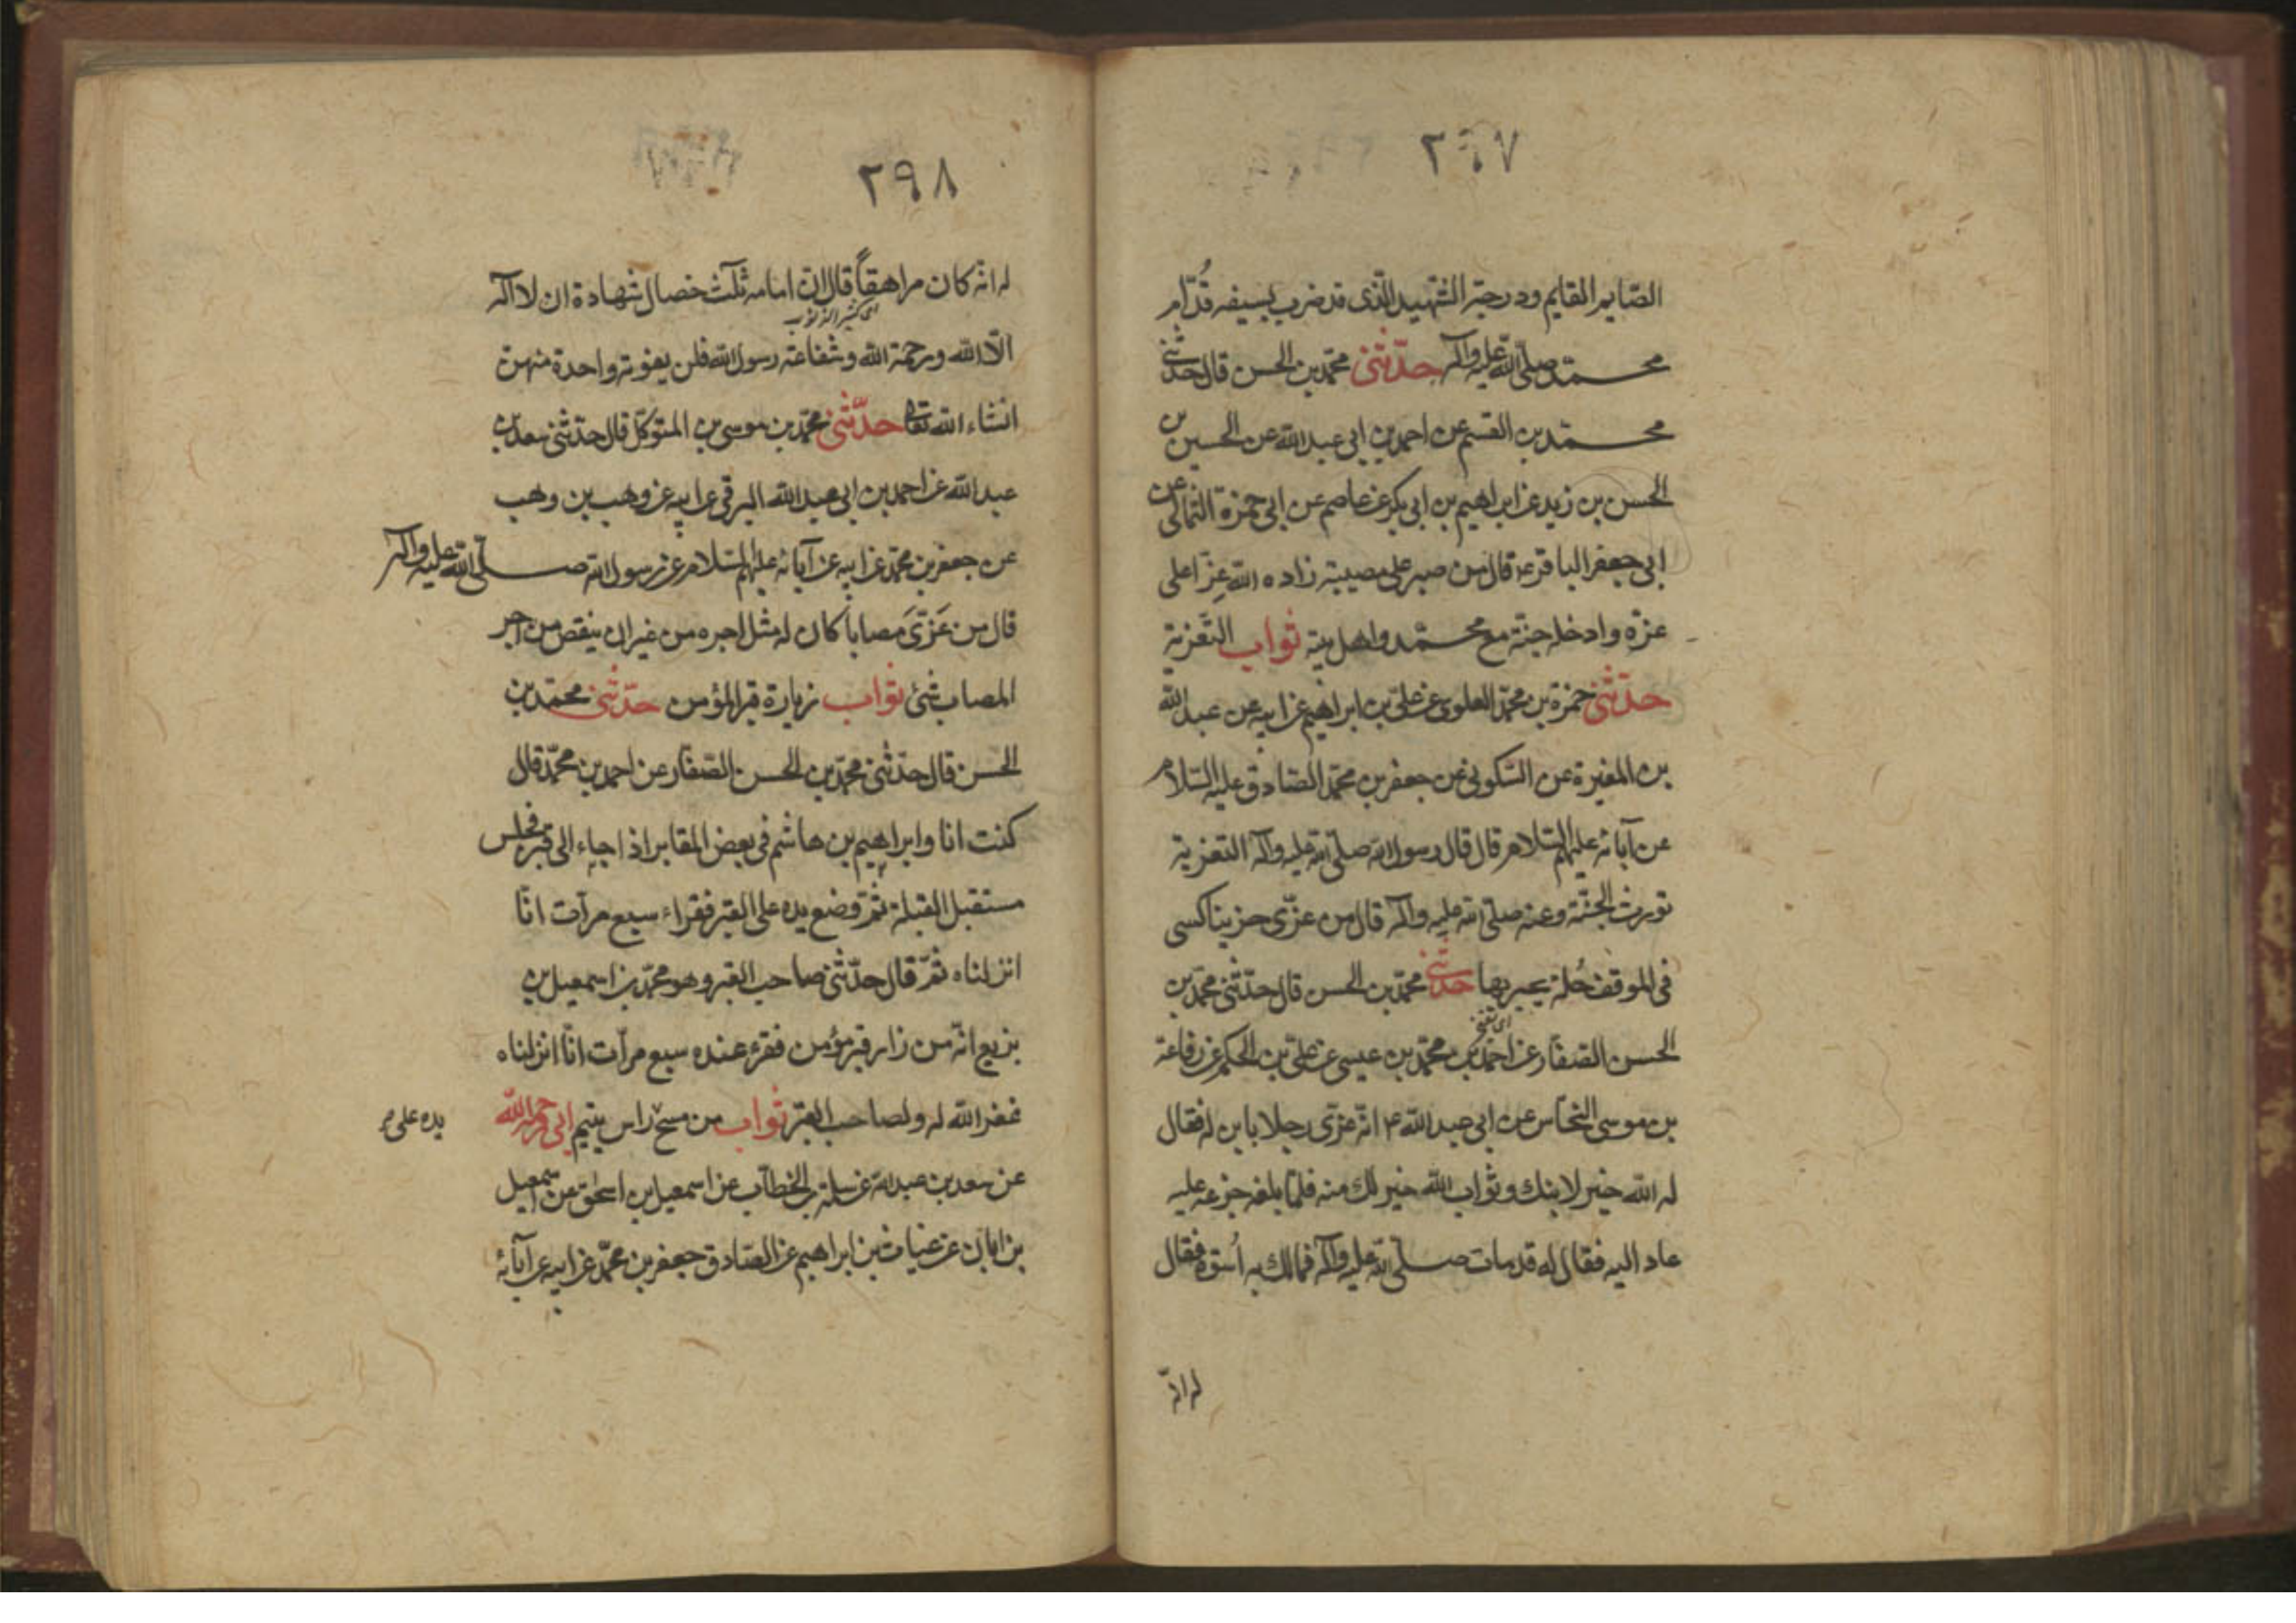 ٢٩٧
الصّايم القايم ودرجة الشّهيد الّذى قد ضرب بسيفه قُدّام
محمّد صلّى الله عليه وآله حدّثنى محمّد بن الحسن قال حدّثنى
محمّد بن القسم عن احمد بن ابى عبد الله عن الحسين بن
الحسن بن زيد عن ابراهيم بن ابى بكر عن عاصم عن ابى حمزة الثمالى عن
ابى جعفر الباقر ع قال من صبر على مصيبة زاده الله عِزّا على
عزّه وادخله جنّته مع محمّد واهل بيته ثواب التّعزية
حدّثنى حمزة بن محمّد العلوى عن علىّ بن ابراهيم عن ابيه عن عبد الله
بن المغيرة عن السّكونى عن جعفر بن محمّد الصّادق عليه السّلام
عن آبائه عليهم السّلام قال قال رسول الله صلّى الله عليه وآله التعزية
تورث الجنّة وعنه صلّى الله عليه وآله قال من عزّى حزينا كسى
فى الموقف حُلة يحبر بها حدّثنى محمّد بن الحسن قال حدّثنى محمّد بن
الحسن الصّفّار عن احمد بن محمّد بن عيسى عن علىّ بن الحكم عن رفاعة
بن موسى النخّاس عن ابى عبد الله ع انّه عزّى رجلا بابن له فقال
له الله خير لابنك وثواب الله خير لك منه فلمّا بلغه جزعه عليه
عاد اليه فقال له قد مات صلّى الله عليه وآله فمالك به اُسوة فقال
له انّه
٢٩٨
له انّه كان مراهقاً قال انّ امامه ثلث خصال شهادة ان لا اله
الّا الله ورحمة الله وشفاعة رسول الله فلن يفوته واحدة منهنّ
انشاء الله تعالى حدّثنى محمّد بن موسى بن المتوكّل قال حدّثنى سعد بن
عبد الله عن احمد بن ابى عبد الله البرقى عن ابيه عن وهب بن وهب
عن جعفر بن محمّد عن ابيه عن آبائه عليهم السّلام عن رسول الله صلّى الله عليه وآله
قال من عَزّىَ مصابا كان له مثل اجره من غير ان ينقص من اجر
المصاب شئ ثواب زيارة قبر المؤمن حدّثنى محمّد بن
الحسن قال حدّثنى محمّد بن الحسن الصّفّار عن احمد بن محمّد قال
كنت انا وابراهيم بن هاشم فى بعض المقابر اذا جاء الى قبر فجلس
مستقبل القبلة ثمّ وضع يده على القبر فقراء سبع مرّات انّا
انزلناه ثمّ قال حدّثنى صاحب القبر وهو محمّد بن اسمعيل بن
بزيع انّه من زار قبر مؤمن فقرء عنده سبع مرّات انّا انزلناه
غفر الله له ولصاحب القبر ثواب من مسح راس يتيم ابى رحمه الله
يده على
عن سعد بن عبد الله عن سلمة بن الخطّاب عن اسمعيل بن اسحق عن اسمعيل
بن ابان عن غياث بن ابراهيم عن الصّادق جعفر بن محمّد عن ابيه عن آبائه